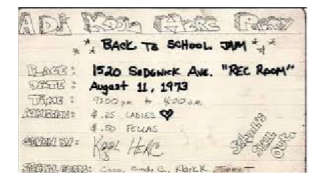 A DJ KOOL HERC PARTY
BACK TO SCHOOL JAM
PLACE: 1520 SEDGWICK AVE. "REC ROOM"
DATE: August 11, 1973
TIME: 9:00 pm to 4:00 am
ADMISSION: $.25 LADIES
$.50 FELLAS
GIVEN BY: KOOL HERC
SPECIAL GUESTS: Coco, Cindy C., KLARK K, Timmy T